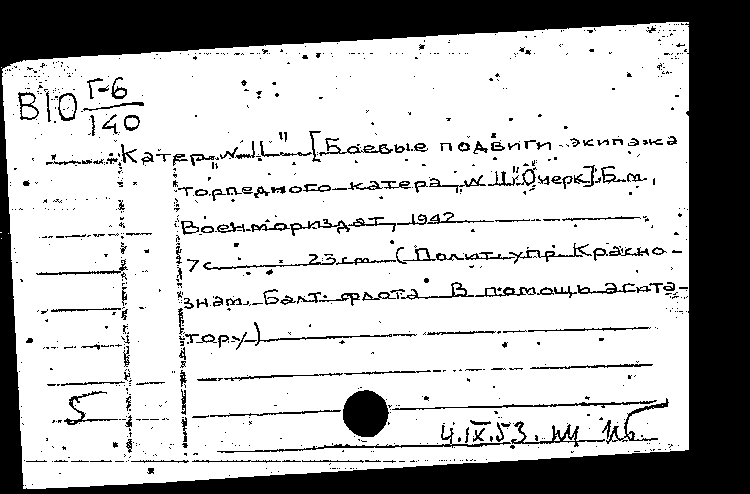 В10 Г-6/140
Катер „N 11". [Боевые подвиги экипажа
торпедного катера „N 11". Очерк]. Б.м.,
Военмориздат, 1942
7с. 23cm (Полит. упр. Красно-
знам. Балт. флота В помощь агита-
тору)
5
4.IX.53.